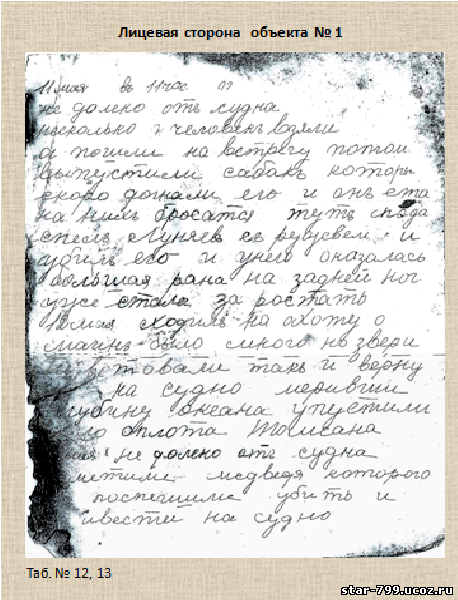 Лицевая сторона объекта № 1
11 мая въ 11 час
не долеко отъ судна
несколько человекъ взяли
и пошли на встречу потом
выпустили сабак которы
скоро догнали его и онъ ста
на нихъ бросатся тутъ
Луняев съ и
убилъ его и унего оказалась
большая рана на задней ног
уже стала за ростать
12 мая сходилъ на охоту о
было много но звери
такъ и верну
на судно меривши
глубину океана упустили
не долеко отъ судна
медведя которого
поспешили убить и
на судно
Таб. № 12, 13
star-799.ucoz.ru